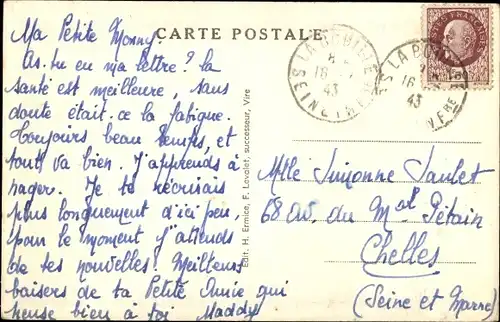 CARTE POSTALE
Ma Petite Monny.
As-tu eu ma lettre? la
santé est meilleure, sans
doute était-ce la fatigue.
Toujours beau temps, et
tout va bien. J'apprends à
nager. Je te récrirais
plus longuement d'ici peu,
pour le moment j'attends
de tes nouvelles. Meilleurs
baisers de ta Petite Amie qui
pense bien à toi Maddy
Edit. H. Ermice, F. Levalet, successeur, Vire
LA BOUILLE
16
43
SEINE INFRE
LA BOUILLE
16
43
POSTES FRANÇAISES
Mlle Simonne Jaulet
68 Av. du Mal Pétain
Chelles
(Seine et Marne)